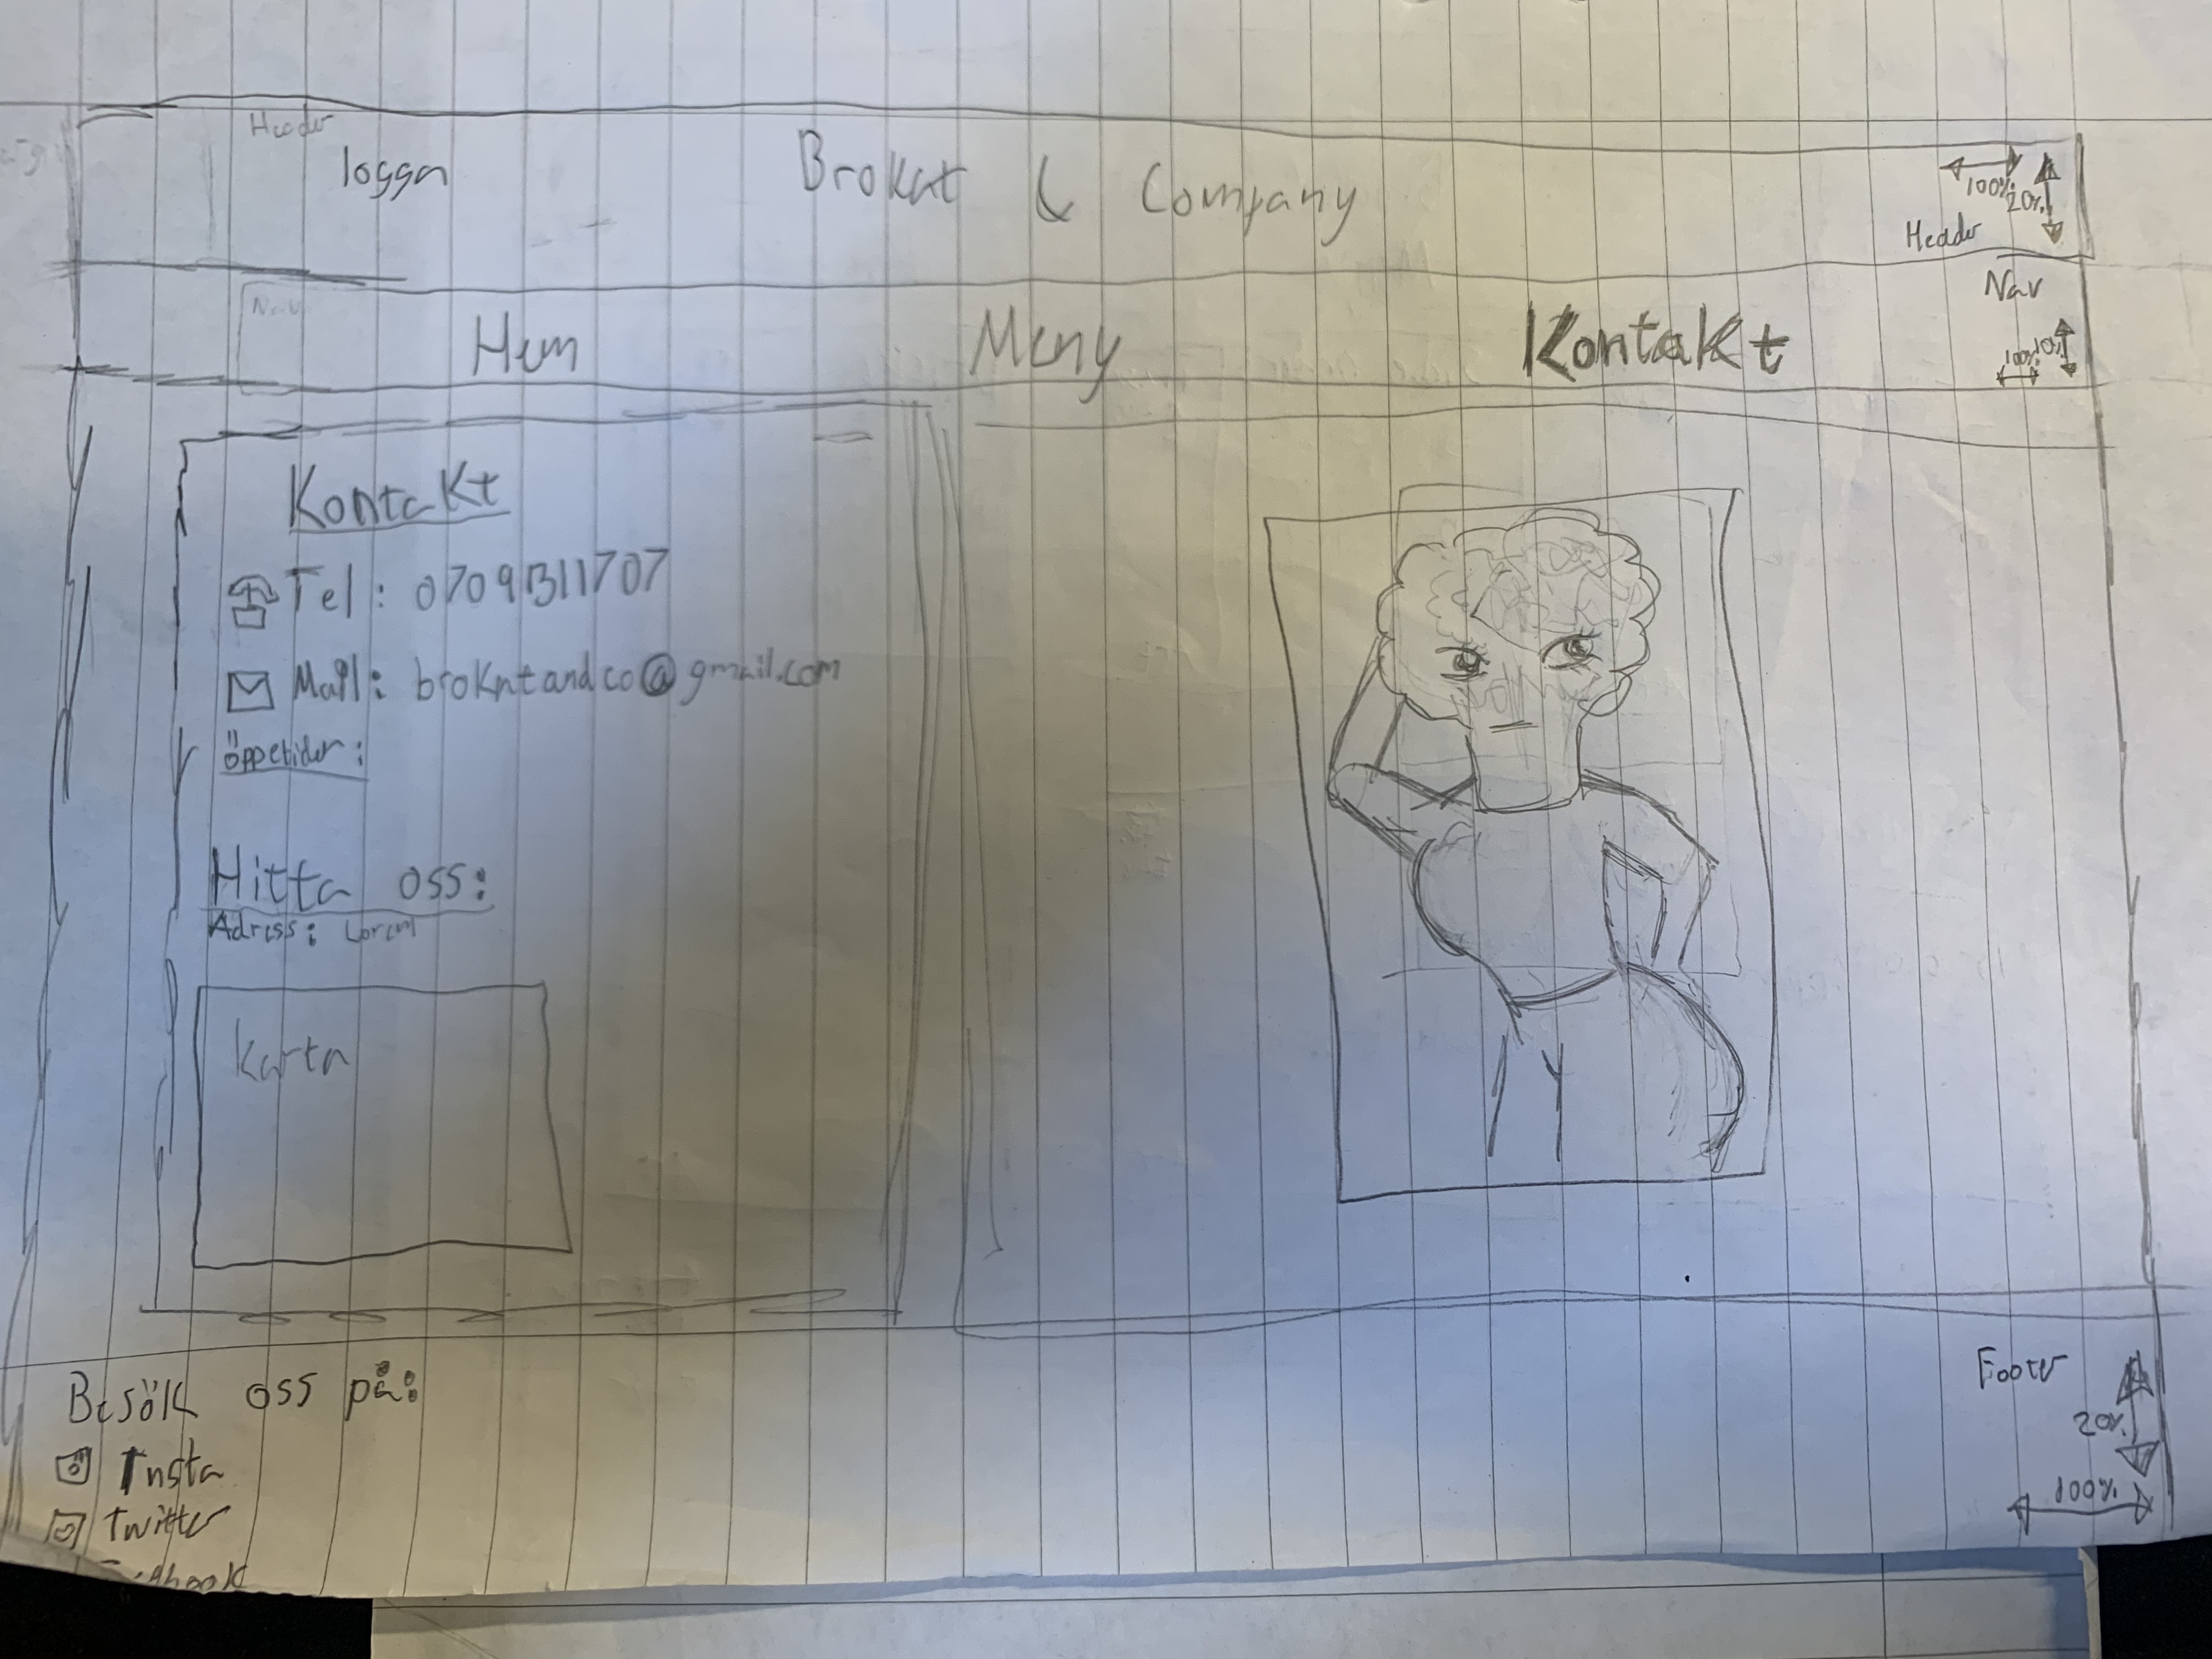 Header
logga
Brokat & Company
100%
20%
Header
Nav
Nav
Hem Meny Kontakt
100% 10%
Kontakt
Tel: 0709311707
Mail: brokatandco@gmail.com
Öppetider:
Hitta oss:
Adress: Lorem
Karta
Besök oss på:
Insta
Twitter
Footer
20%
100%